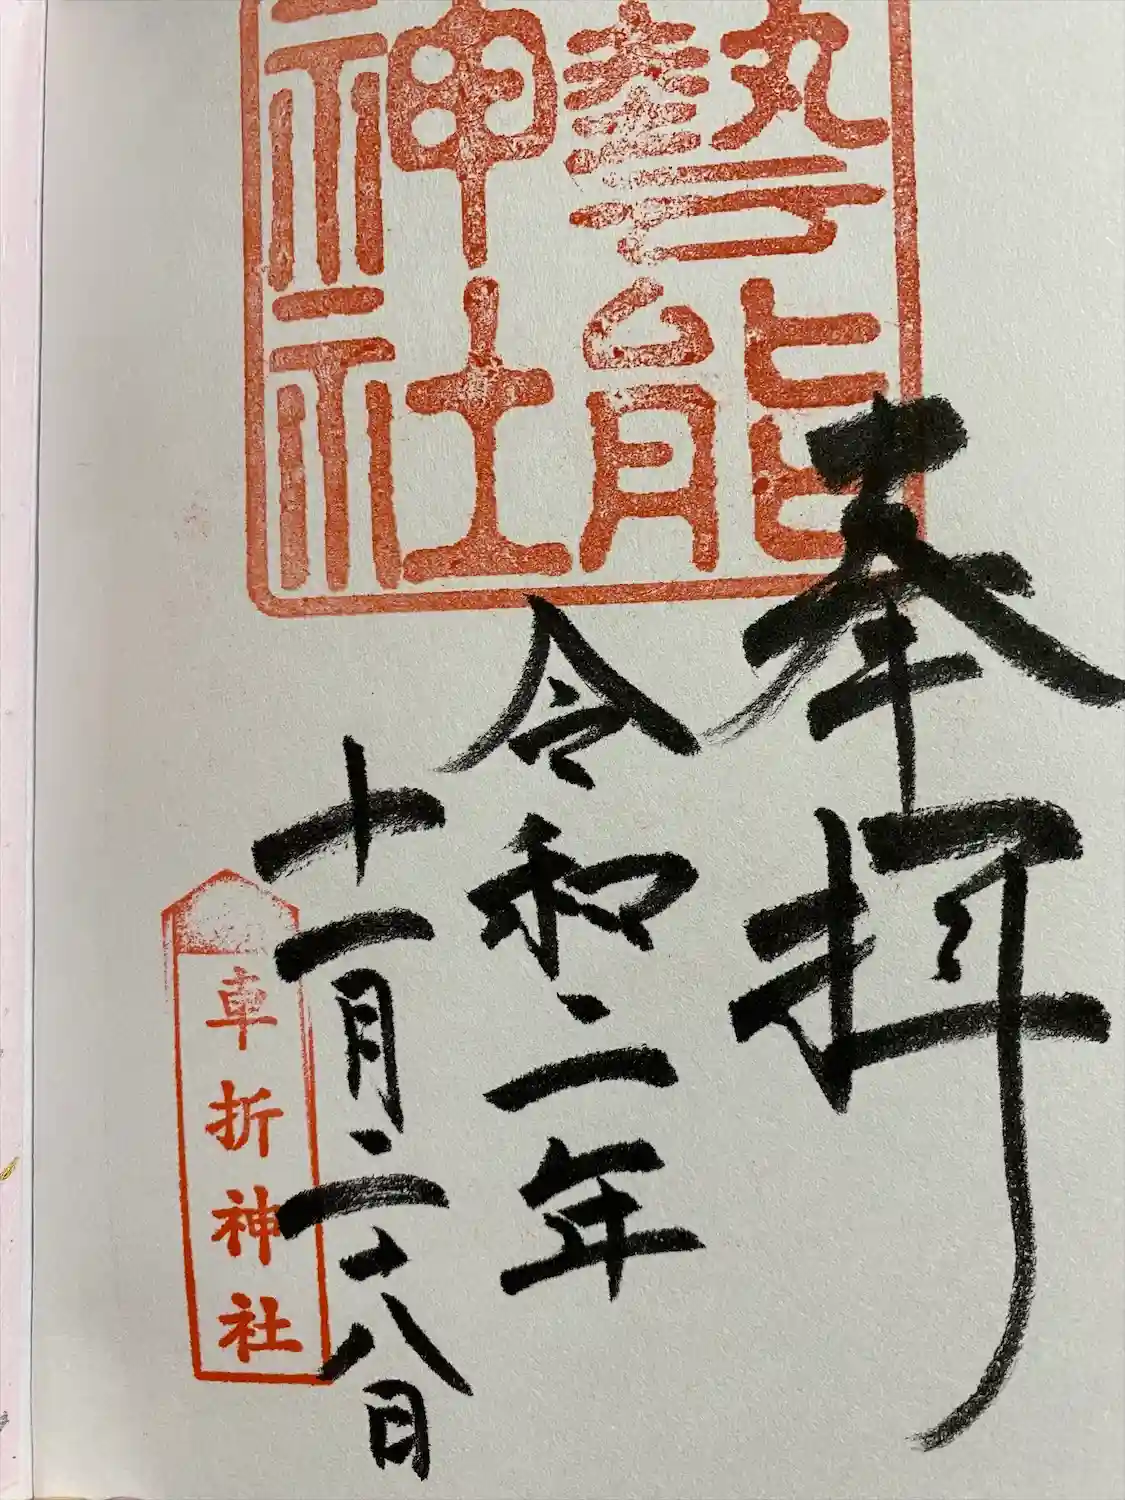 藝能
神社
奉拝
令和二年
十一月二十八日
車折神社